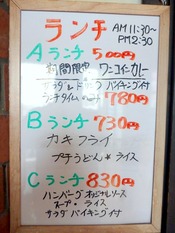 ランチ AM11:30~
PM2:30
Aランチ 500円
期間限定 ワンコインカレー
サラダ&ドリンク バイキング付
ランチタイムのみ 780円
Bランチ 730円
カキフライ
プチうどん*ライス
Cランチ 830円
ハンバーグ オリジナルソース
スープ・ライス
サラダバイキング付